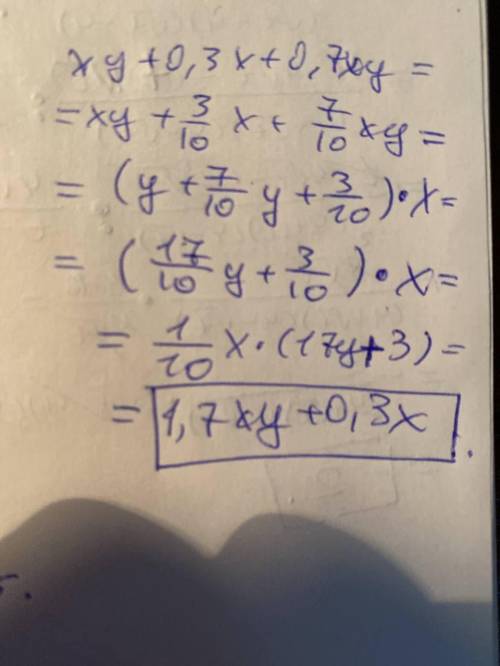 xy+0,3x+0,7xy=
=xy+3/10 x+7/10 xy=
=(y+7/10 y+3/10)·x=
=(17/10 y+3/10)·x=
=1/10 x·(17y+3)=
=1,7xy+0,3x.